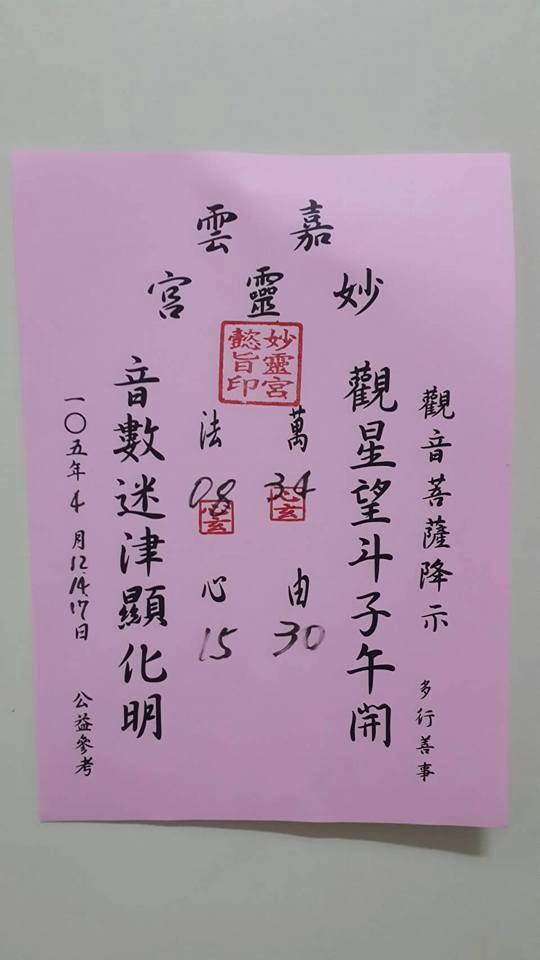 嘉雲
妙靈宮
妙靈宮
懿旨印
觀音菩薩降示 多行善事
觀星望斗子午開
萬 34 由 30
心玄
法 08 心 15
心玄
音數迷津顯化明
一〇五年4月12.14.17日 公益參考